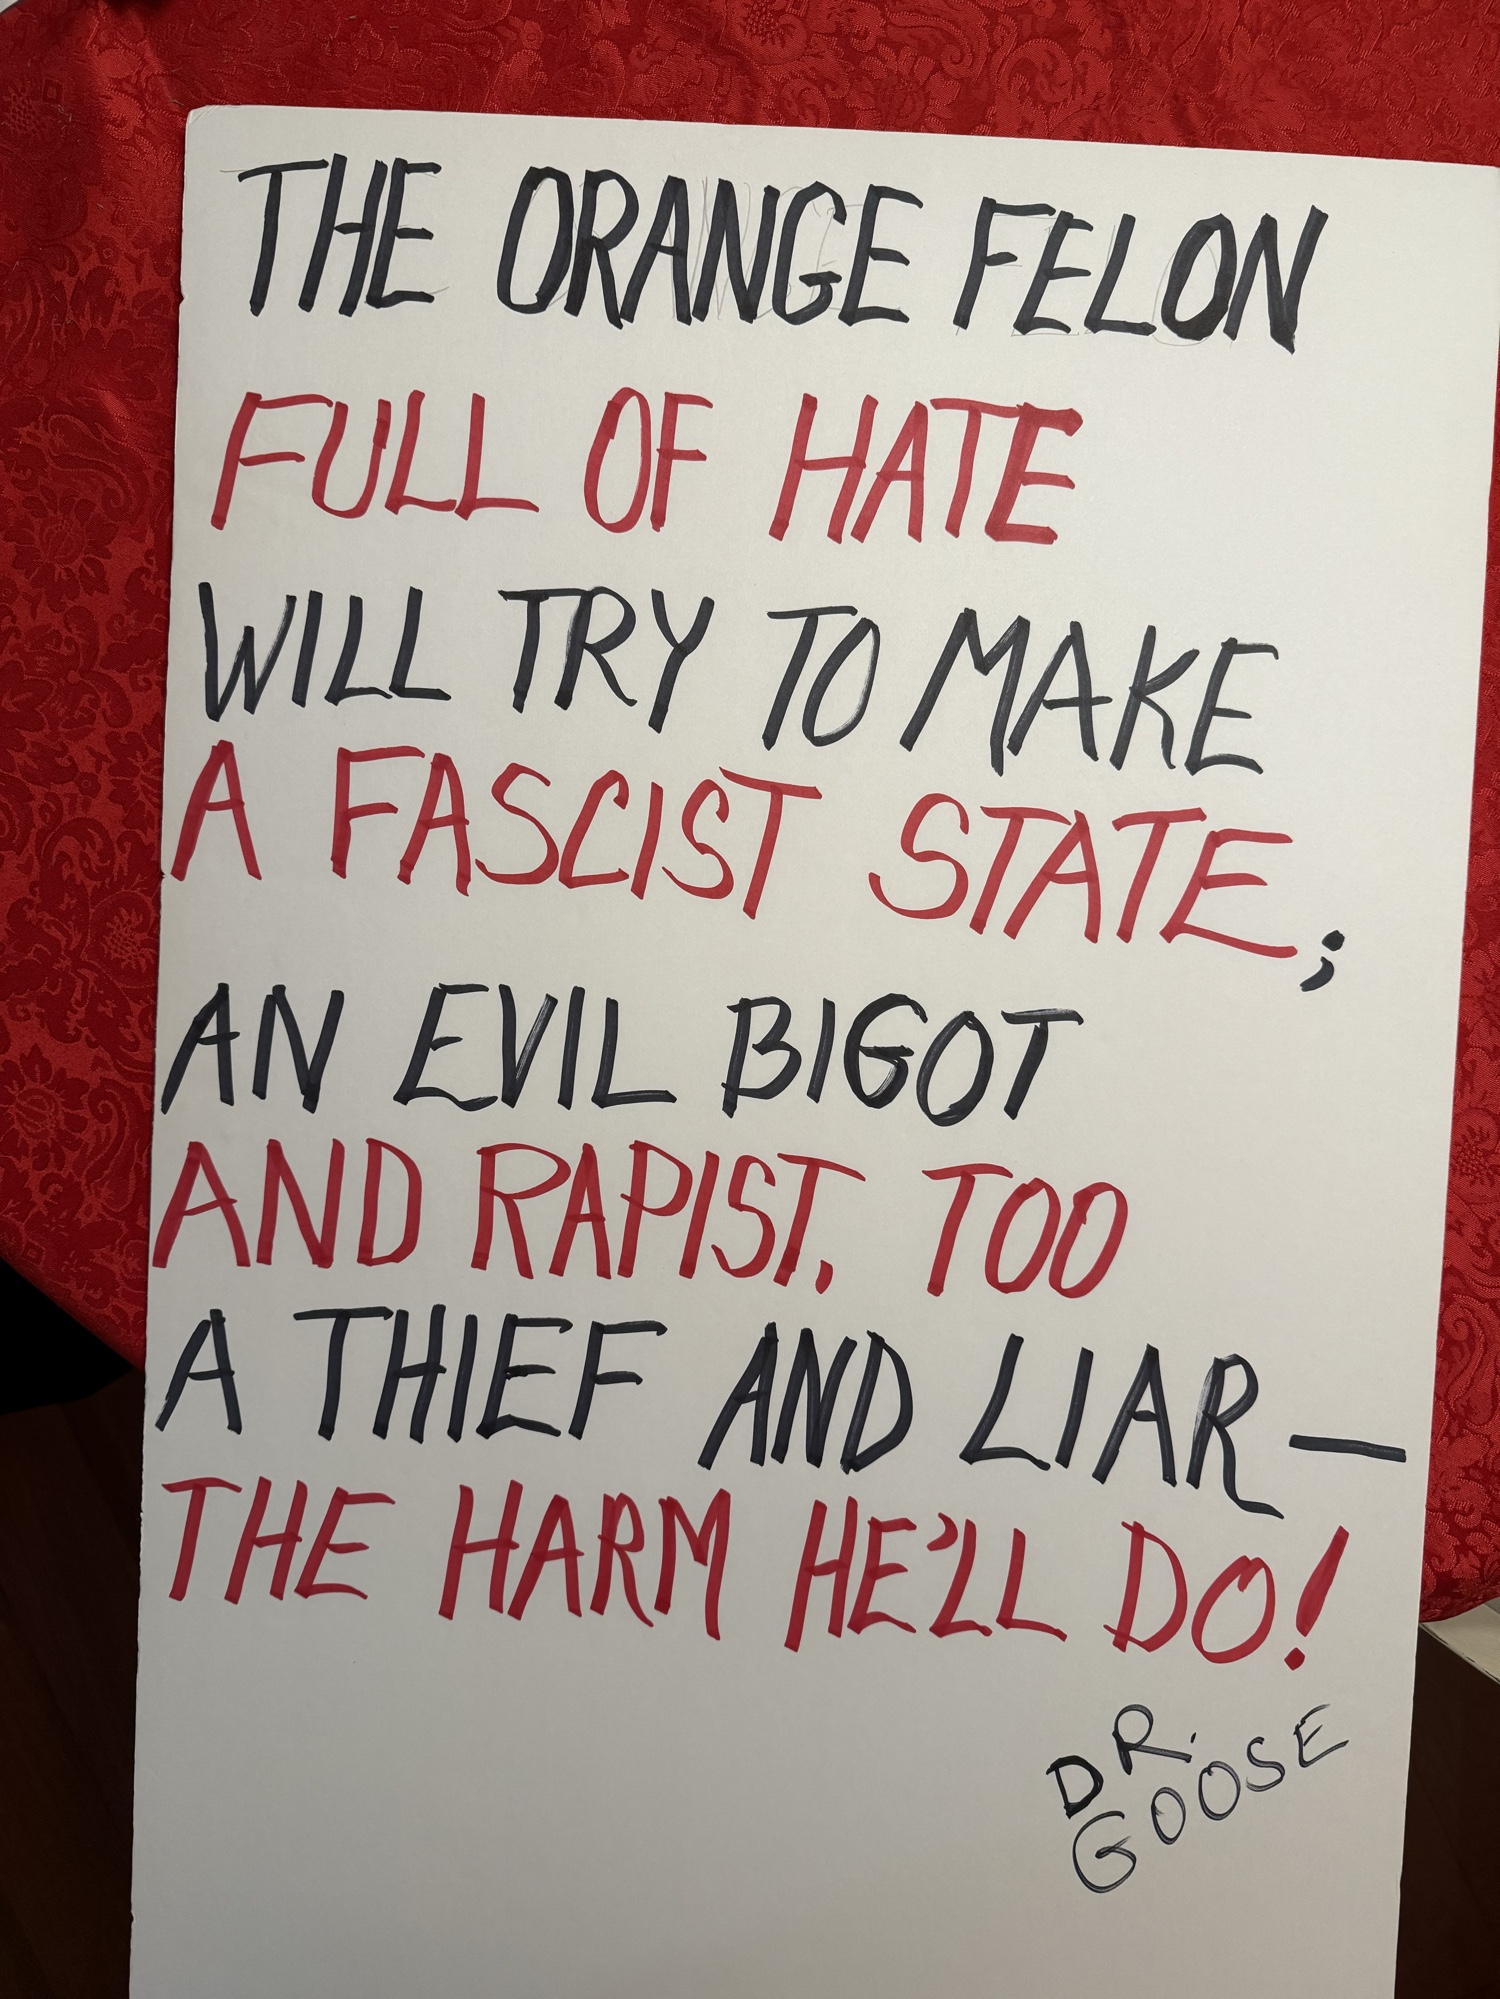 THE ORANGE FELON
FULL OF HATE
WILL TRY TO MAKE
A FASCIST STATE;
AN EVIL BIGOT
AND RAPIST, TOO
A THIEF AND LIAR—
THE HARM HE'LL DO!
DR.
GOOSE